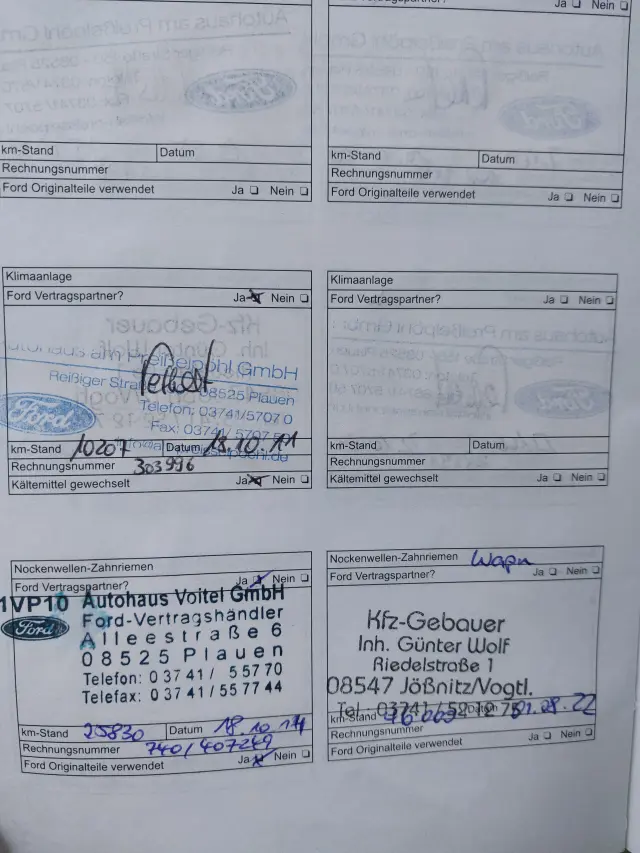 Ja ❏ Nein ❏
km-Stand Datum
Rechnungsnummer
Ford Originalteile verwendet Ja ❏ Nein ❏
km-Stand Datum
Rechnungsnummer
Ford Originalteile verwendet Ja ❏ Nein ❏
Klimaanlage
Ford Vertragspartner? Ja Nein ❏
Autohaus am Preißelpöhl GmbH
Reißiger Straße
08525 Plauen
Telefon: 03741/5707 0
Fax: 03741/5707
Ford
km-Stand 10207 Datum 18.10.11
Rechnungsnummer 303996
Kältemittel gewechselt Ja Nein ❏
Klimaanlage
Ford Vertragspartner? Ja ❏ Nein ❏
km-Stand Datum
Rechnungsnummer
Kältemittel gewechselt Ja ❏ Nein ❏
Nockenwellen-Zahnriemen
Ford Vertragspartner? Ja Nein ❏
1VP10 Autohaus Voitel GmbH
Ford Ford-Vertragshändler
Alleestraße 6
08525 Plauen
Telefon: 03741/ 55770
Telefax: 03741/557744
km-Stand 25830 Datum 18.10.14
Rechnungsnummer 740/407249
Ford Originalteile verwendet Ja Nein ❏
Nockenwellen-Zahnriemen
Ford Vertragspartner? Ja ❏ Nein ❏
Kfz-Gebauer
Inh. Günter Wolf
Riedelstraße 1
08547 Jößnitz/Vogtl.
Tel.: 03741/52 12 75
km-Stand Datum 01.08.22
Rechnungsnummer
Ford Originalteile verwendet Ja ❏ Nein ❏